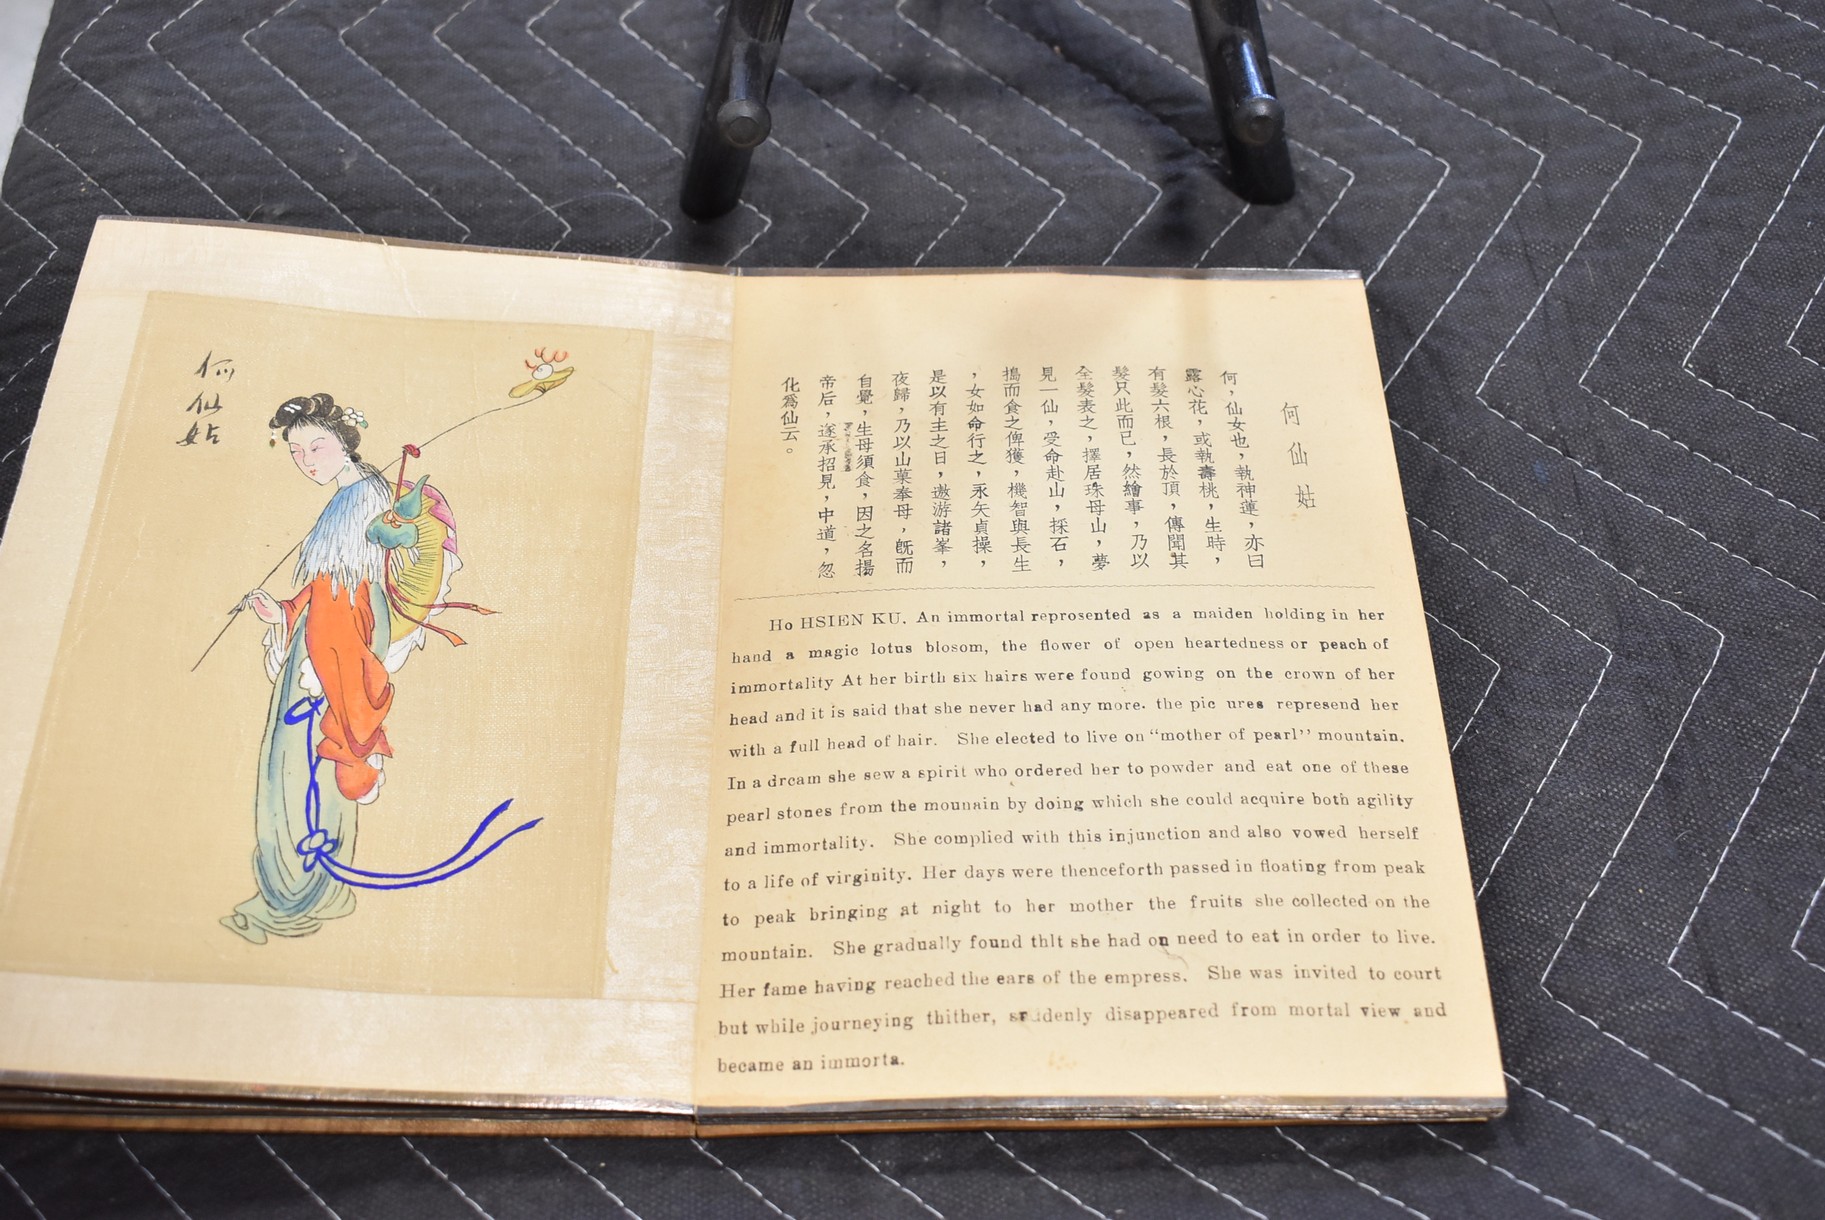 何仙姑
何仙姑
何，仙女也，執神蓮，亦曰
露心花，或執壽桃，生時，
有髮六根，長於頂，傳聞其
髮只此而已，然繪事，乃以
全髮表之，擇居珠母山，夢
見一仙，受命赴山，採石，
搗而食之俾獲，機智與長生
，女如命行之，永矢貞操，
是以有主之日，遨游諸峯，
夜歸，乃以山菓奉母，旣而
自覺，生母須食，因之名揚
帝后，遂承招見，中道，忽
化爲仙云。
Ho HSIEN KU. An immortal reprosented as a maiden holding in her
hand a magic lotus blosom, the flower of open heartedness or peach of
immortality At her birth six hairs were found gowing on the crown of her
head and it is said that she never had any more. the pic ures represend her
with a full head of hair. She elected to live on "mother of pearl" mountain.
In a dream she sew a spirit who ordered her to powder and eat one of these
pearl stones from the mounain by doing which she could acquire both agility
and immortality. She complied with this injunction and also vowed herself
to a life of virginity. Her days were thenceforth passed in floating from peak
to peak bringing at night to her mother the fruits she collected on the
mountain. She gradually found thlt she had on need to eat in order to live.
Her fame having reached the ears of the empress. She was invited to court
but while journeying thither, disappeared from mortal view and
became an immorta.